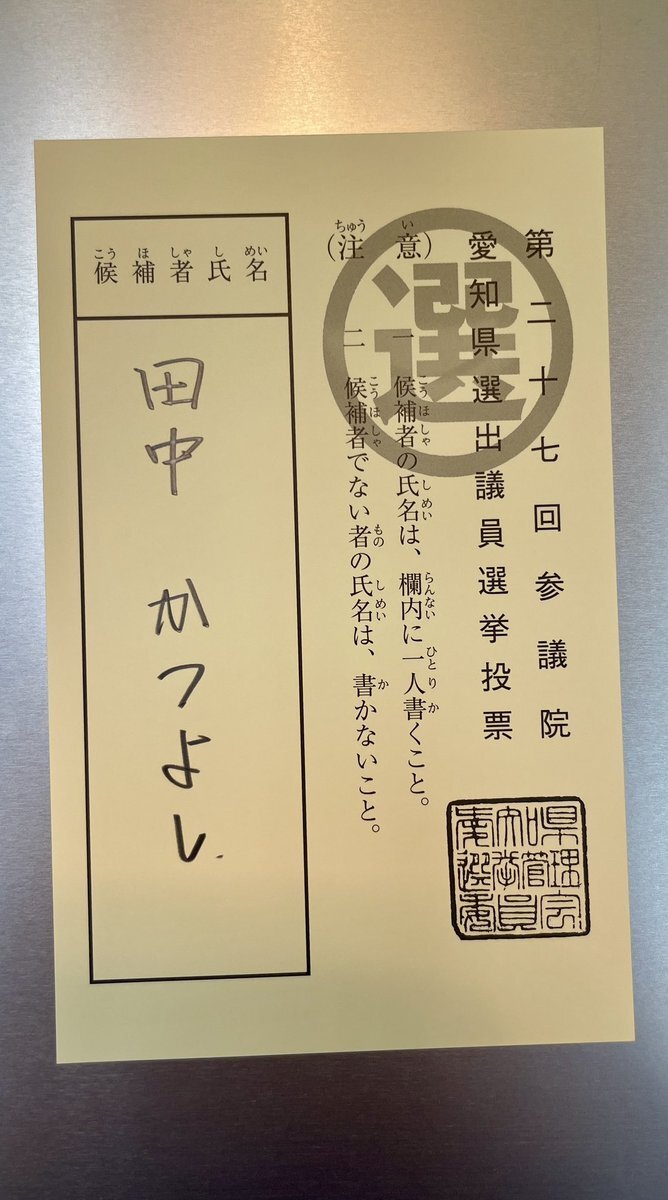 第二十七回参議院
愛知県選出議員選挙投票
選
(注意)
一 候補者の氏名は、欄内に一人書くこと。
二 候補者でない者の氏名は、書かないこと。
候補者氏名
田中 かつよし
愛知県選挙管理委員会